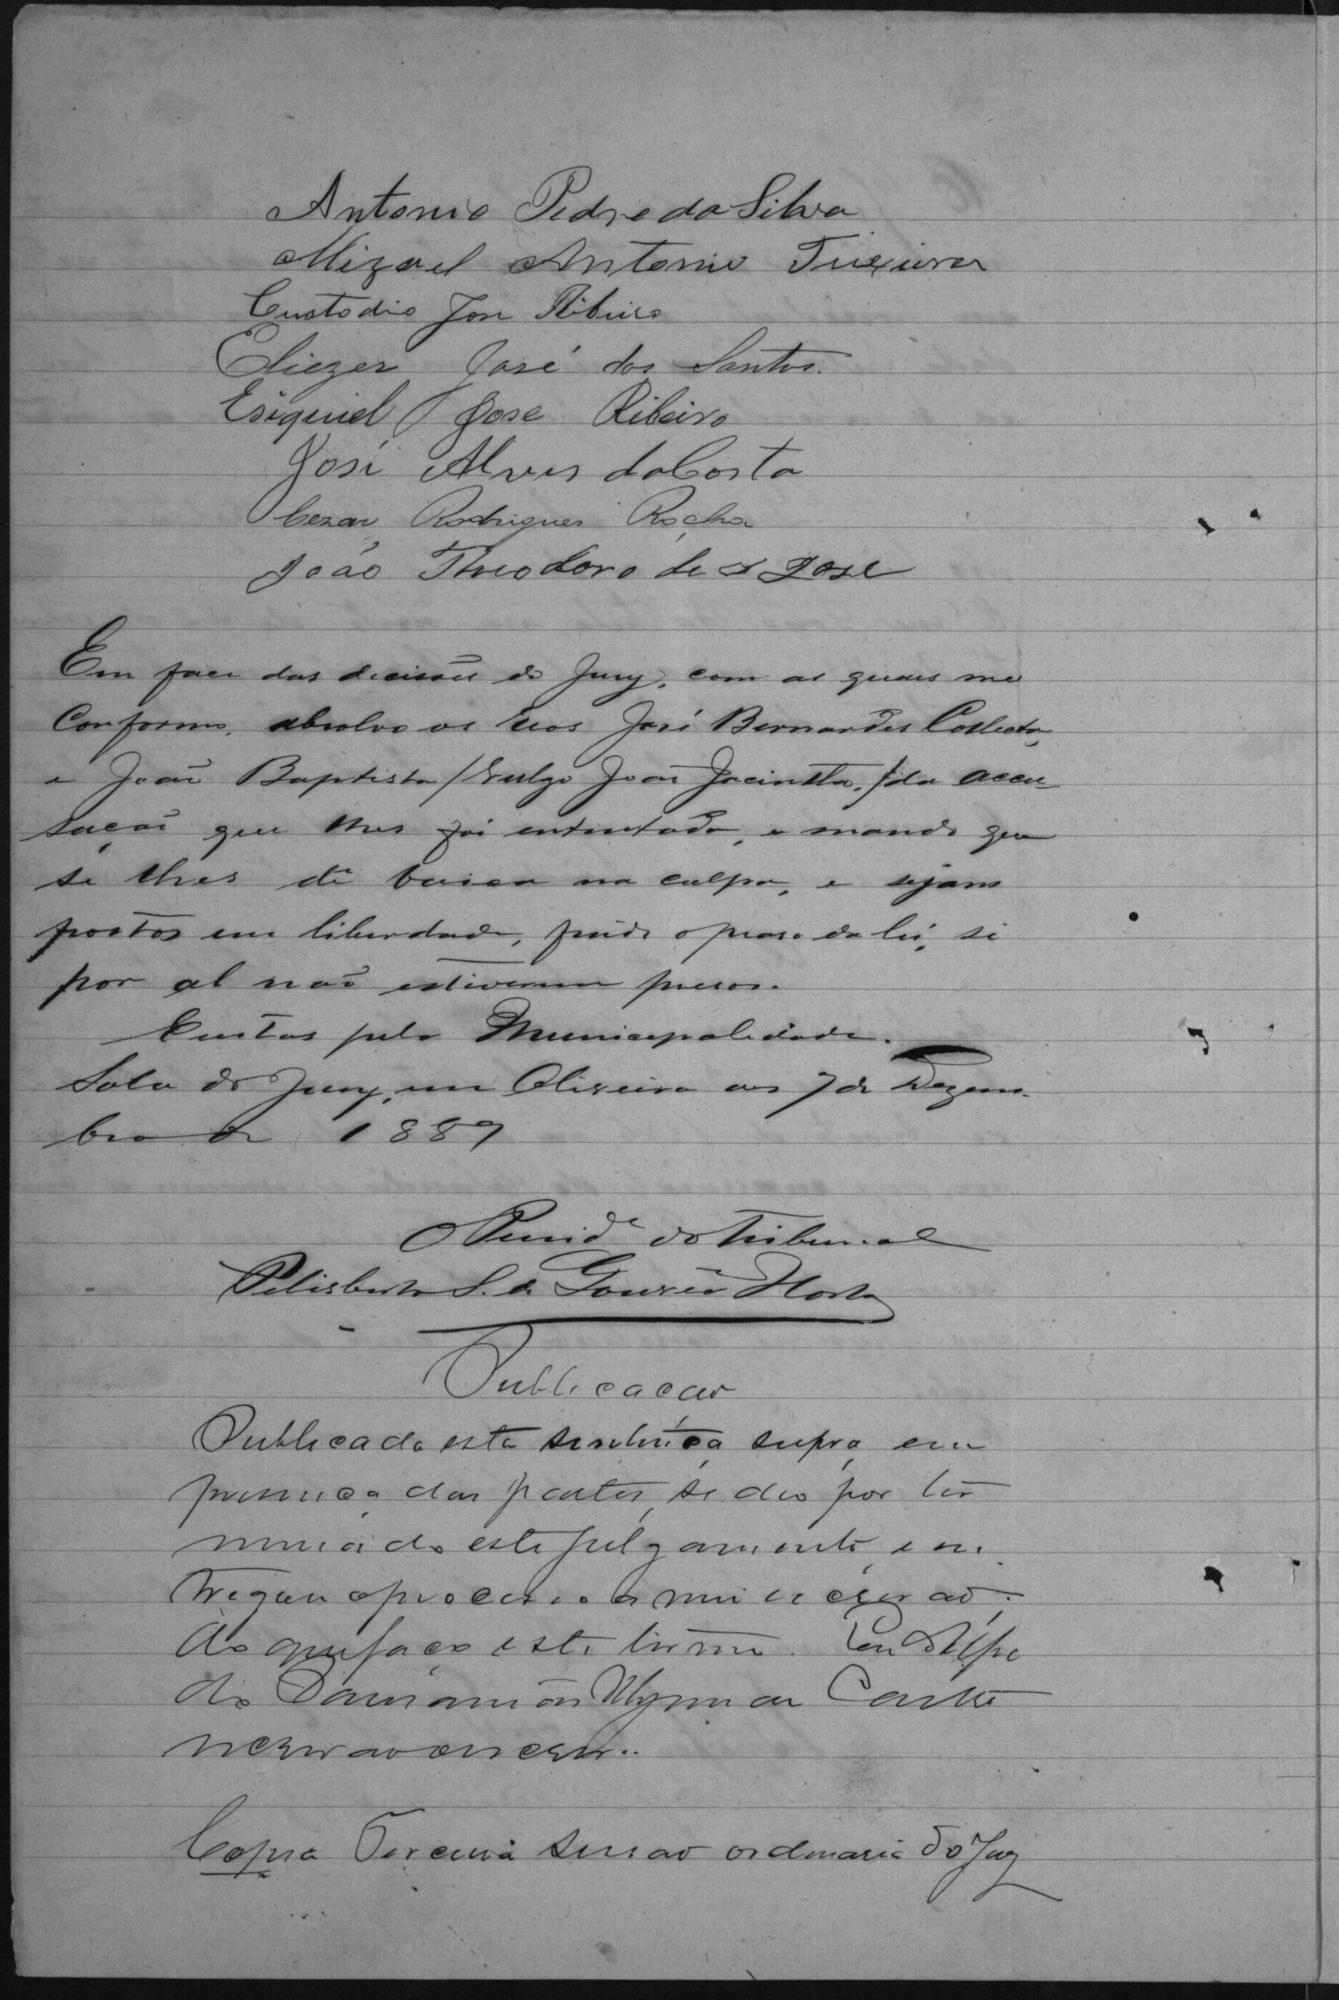 Antonio Pedro da Silva
Mizael Antonio Teixeira
Custodio Jose Ribeiro
Eliezer José dos Santos.
Esiquiel Jose Ribeiro
José Alves da Costa
Cezar Rodrigues Rocha
João Theodoro de S José
Em face das decisões do Jury, com as quaes me
Conformo, absolvo os réos José Bernardes Collecta,
e João Baptista /vulgo João Jacintho,/ da accu
sação que lhes foi intentada, e mando que
se lhes dê baixa na culpa, e sejam
postos em liberdade, findo o praso da lei, si
por al não estiverem presos.
Custas pela Municipalidade.
Sala do Jury, em Oliveira aos 7 de Dezem-
bro de 1889
O Presid.e do Tribunal
S. de Gouvêa Horta
Publicação
Publicada esta sentença supra em
presença das partes, se deo por ter
minado este julgamento, e en
tregou o processo a mim escrivão,
do que faço este termo. Eu
do
escrivão escrevi..
Copia Terceira sessão ordinaria do Jury